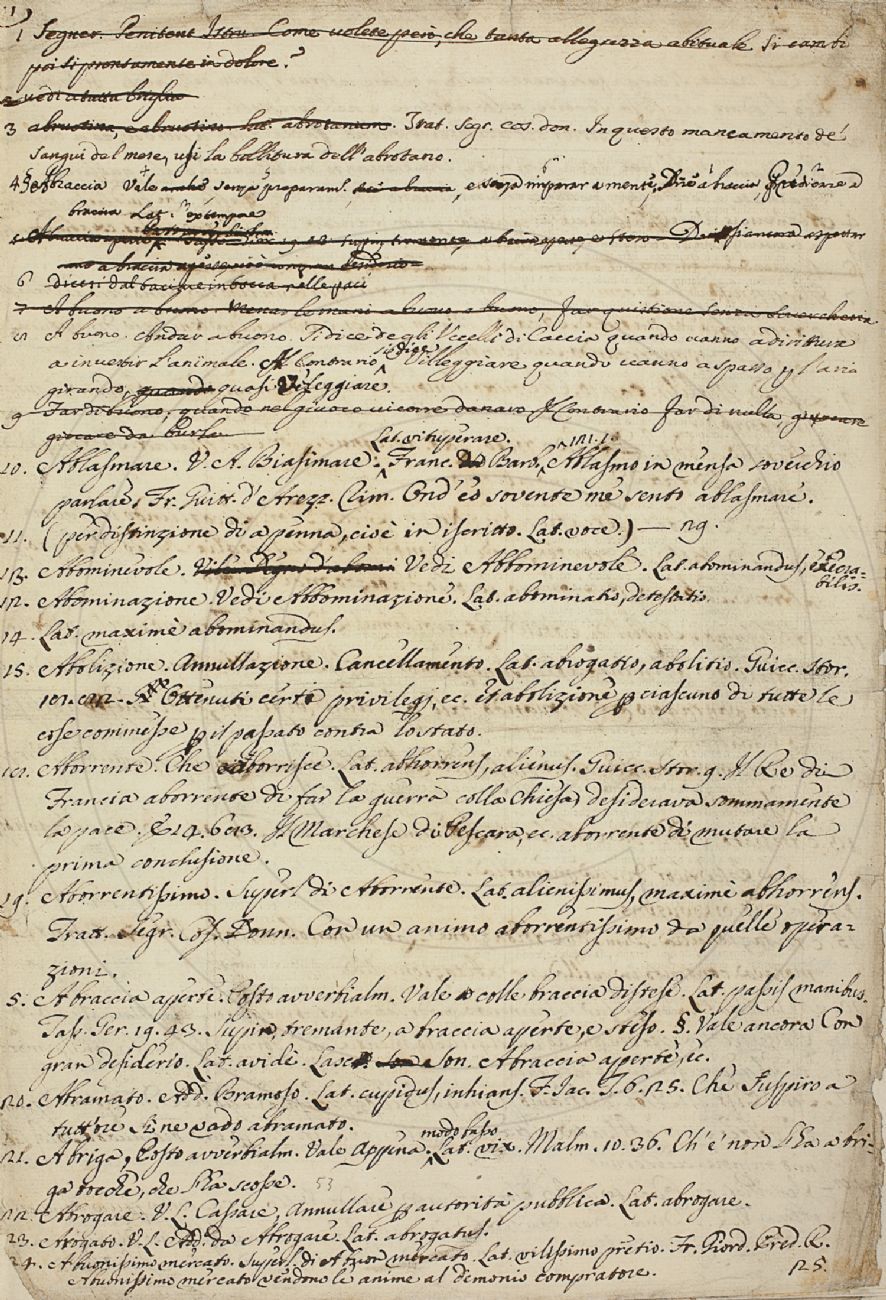 1 Segner. Penitent Istru. Come volete però, che tanta allegrezza abituale si cambi
poi sì prontamente in dolore?
vedi a tutta briglia
3 abrotina, e abrotino. Lat. abrotanum. Trat. segr. cos. don. In questo mancamento de'
sangui del mese, usi la bollitura dell'abrotano.
4 § Abraccia Vale senza preparams. e senza imparar a mente, Dire a braccia, Predicare a
braccia Lat. ex tempore
6 dicesi dal baciare in bocca nelle paci
7 A buono a buono. Menar le mani a buono a buono, far quistione senza
8 A buono. Andar a buono. Si dice degli Uccelli di Caccia quando vanno a dirittura
a investir l'animale. Al Contrario si dice Volleggiare quando vanno a spasso p l'aria
girando, quando quasi Volteggiare.
9 Far di buono, quando nel giuoco vi corre danaro Il Contrario Far di nulla, giucare
giocare da burla
Lat. vituperare.
10. Ablasmare. V. A. Biasimare. Franc. Barb. Ablasmo in mensa soverchio
parlare, Fr. Guitt. d'Arezz. Rim. Ond' eo sovente me sento ablasmare.
11. (per distinzione di a penna, cioè in iscritto. Lat. voce.) — 29.
13. Abominevole. Vedi Abbominevole. Lat. abominandus, execra-
bilis.
12. Abominazione. Vedi Abbominazione. Lat. abominatio, detestatio.
14. Lat. maximè abominandus.
15. Abolizione. Annullazione. Cancellamento. Lat. abrogatio, abolitio. Guicc. Stor.
Ottenuti certi privilegj, ec. et abolizione p ciascuno di tutte le
cose commesse p il passato contra lo stato.
Aborrente. Che aborrisce. Lat. abhorrens, alienus. Guicc. Stor. 9. Il Re di
Francia aborrente di far la guerra colla Chiesa, desiderava sommamente
la pace. E 14. 613. Il Marchese di Pescara, ec. aborrente di mutare la
prima conclusione.
19. Aborrentissimo. Superl. di Aborrente. Lat. alienissimus, maximè abhorrens.
Tratt. Segr. Cos. Donn. Con un animo aborrentissimo da quelle opera-
zioni.
5. A braccia aperte. Posto avverbialm. Vale colle braccia distese. Lat. passis manibus.
Tass. Ger. 19. 43. Supin, tremante, a braccia aperte, e steso. §. Vale ancora Con
gran desiderio. Lat. avidè. Lasc. Son. A braccia aperte, ec.
20. Abramato. Add. Bramoso. Lat. cupidus, inhians. F. Jac. T. 6. 25. Che suspiro a
tutt'ore Ane vado abramato.
modo basso
21. A briga, Posto avverbialm. Vale Appena. Lat. vix. Malm. 10. 36. Ch'e' non l'ha a bri-
ga tocche, che l'ha scosse. 53
22. Abrogare. V. L. Cassare, Annullare p autorità pubblica. Lat. abrogare.
23. Abrogato. V. L. Add. da Abrogare. Lat. abrogatus.
24. A buonissimo mercato. Superl. di A buon mercato. Lat. vilissimo pretio. Fr. Giord. Pred. R.
A buonissimo mercato vendono le anime al demonio compratore. 25.